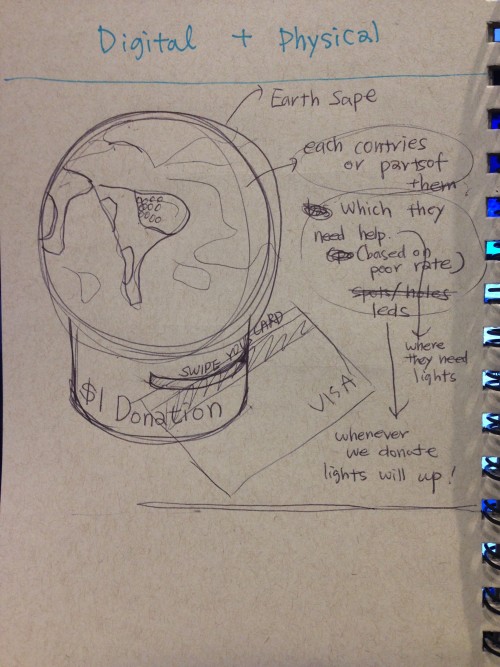 Digital + Physical
Earth Sape
each contries
or partsof
them.
which they
need help.
(based on
poor rate)
spots/holes
leds
where
they need
lights
SWIDE YOUR CARD
VISA
$1 Donation
whenever
we donate
lights will up!